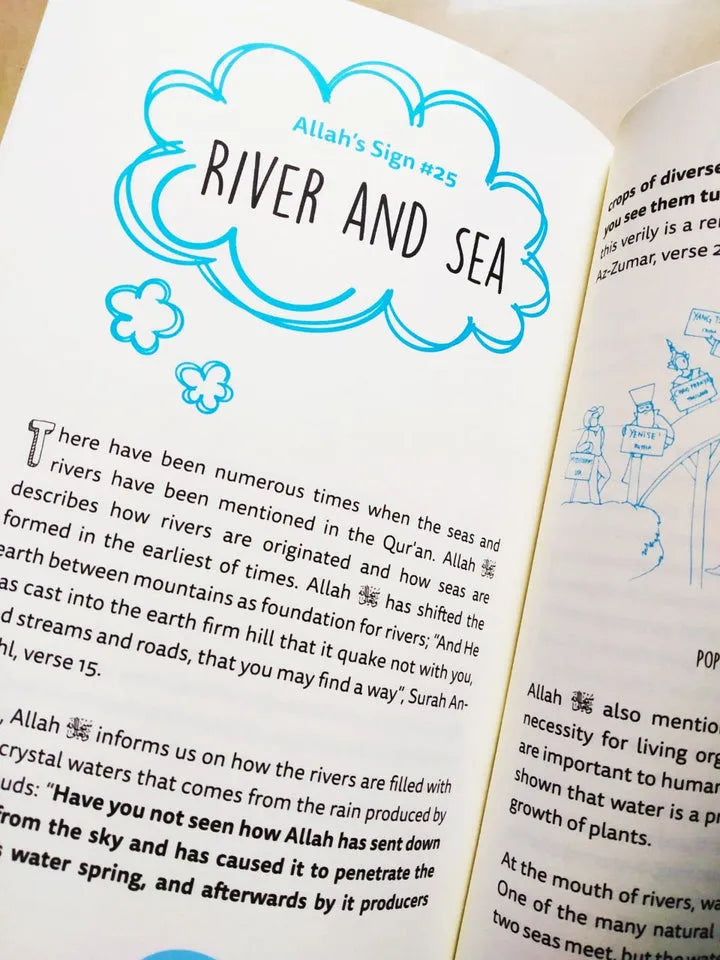 Allah's Sign #25
RIVER AND SEA
There have been numerous times when the seas and
rivers have been mentioned in the Qur'an. Allah ﷻ
describes how rivers are originated and how seas are
formed in the earliest of times. Allah ﷻ has shifted the
earth between mountains as foundation for rivers; "And He
as cast into the earth firm hill that it quake not with you,
d streams and roads, that you may find a way", Surah An-
hl, verse 15.
, Allah ﷻ informs us on how the rivers are filled with
crystal waters that comes from the rain produced by
uds: "Have you not seen how Allah has sent down
from the sky and has caused it to penetrate the
s water spring, and afterwards by it producers
crops of diverse
you see them tu
this verily is a re
Az-Zumar, verse 2
YANG T
YENISE
RUSSIA
THAILAND
POP
Allah ﷻ also mentio
necessity for living org
are important to human
shown that water is a pr
growth of plants.
At the mouth of rivers, wa
One of the many natural
two seas meet, but the wate